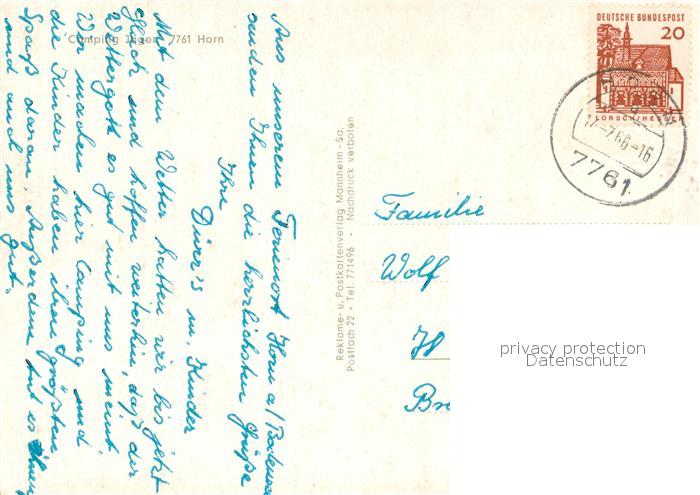 Camping Jäger 7761 Horn
Aus unserem Ferienort Horn a/Bodensee
senden Ihnen die herzlichsten Grüße
Ihre
Dürr's u. Kinder
Mit dem Wetter hatten wir bis jetzt
Glück und hoffen weiterhin, daß der
Wettergott es gut mit uns meint
Wir machen hier Camping und
die Kinder haben ihren größten
Spaß daran. Außerdem tut es ihnen
und auch uns gut.
Reklame- u. Postkartenverlag Mannheim-Sa.
Postfach 22 · Tel. 771496 · Nachdruck verboten
DEUTSCHE BUNDESPOST
20
LORSCH/HESSEN
-7.66-16
7761
Familie
Wolf
privacy protection
Datenschutz